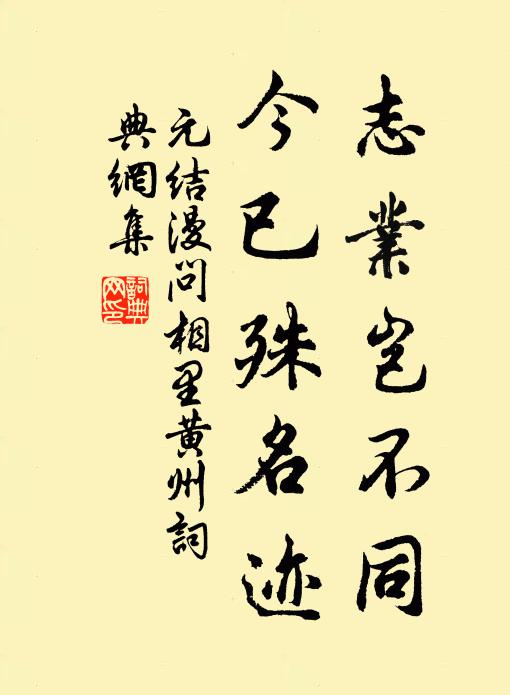 志業豈不同
今已殊名迹
元结漫问相里黄州詞
典網集
詞典
网印